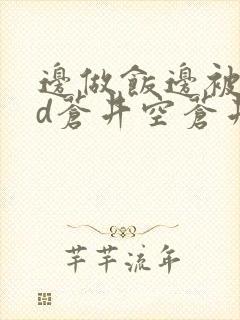 邊做飯邊被
d蒼井空蒼井
芊芊流年